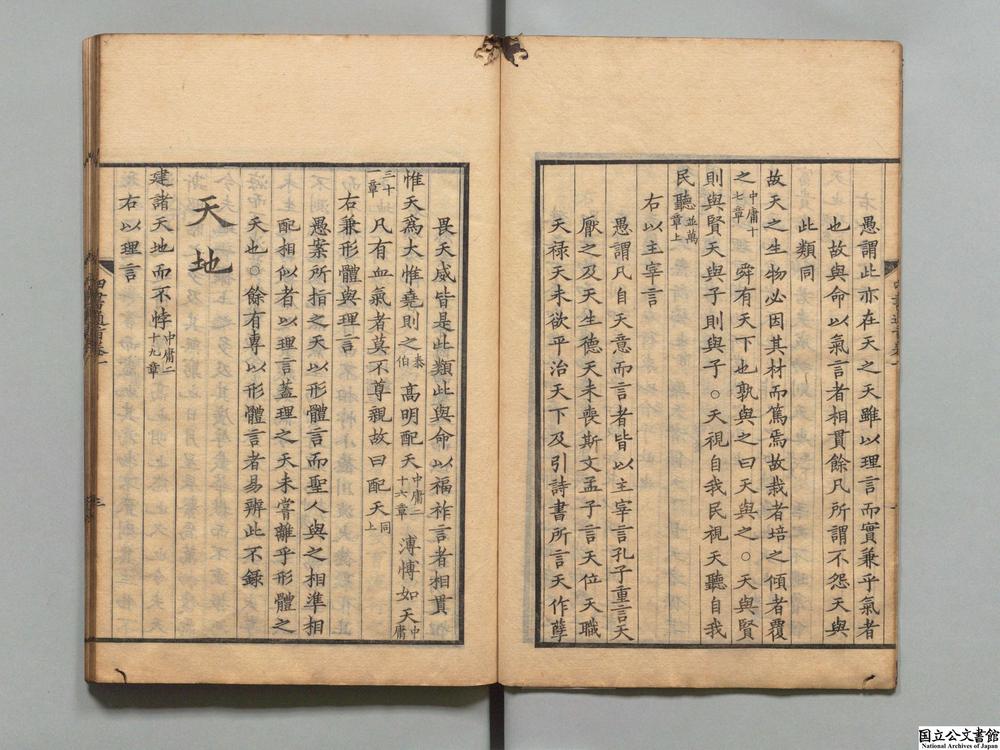 愚謂此亦在天之天雖以理言而實兼乎氣者
也故與命以氣言者相貫餘凡所謂不怨天與
此類同
故天之生物必因其材而篤焉故栽者培之傾者覆
之中庸十七章 舜有天下也孰與之曰天與之○天與賢
則與賢天與子則與子○天視自我民視天聽自我
民聽並萬章上
右以主宰言
愚謂凡自天意而言者皆以主宰言孔子重言天
厭之及天生德天未喪斯文孟子言天位天職
天祿天未欲平治天下及引詩書所言天作孽
畏天威皆是此類此與命以福祚言者相貫
惟天爲大惟堯則之泰伯 高明配天中庸二十六章 溥愽如天中庸
三十一章 凡有血氣者莫不尊親故曰配天同上
右兼形體與理言
愚案所指之天以形體言而聖人與之相準相
配相似者以理言蓋理之天未嘗離乎形體之
天也○餘有專以形體言者易辨此不錄
天地
建諸天地而不悖中庸二十九章
右以理言
四書通旨卷一
三
国立公文書館
National Archives of Japan